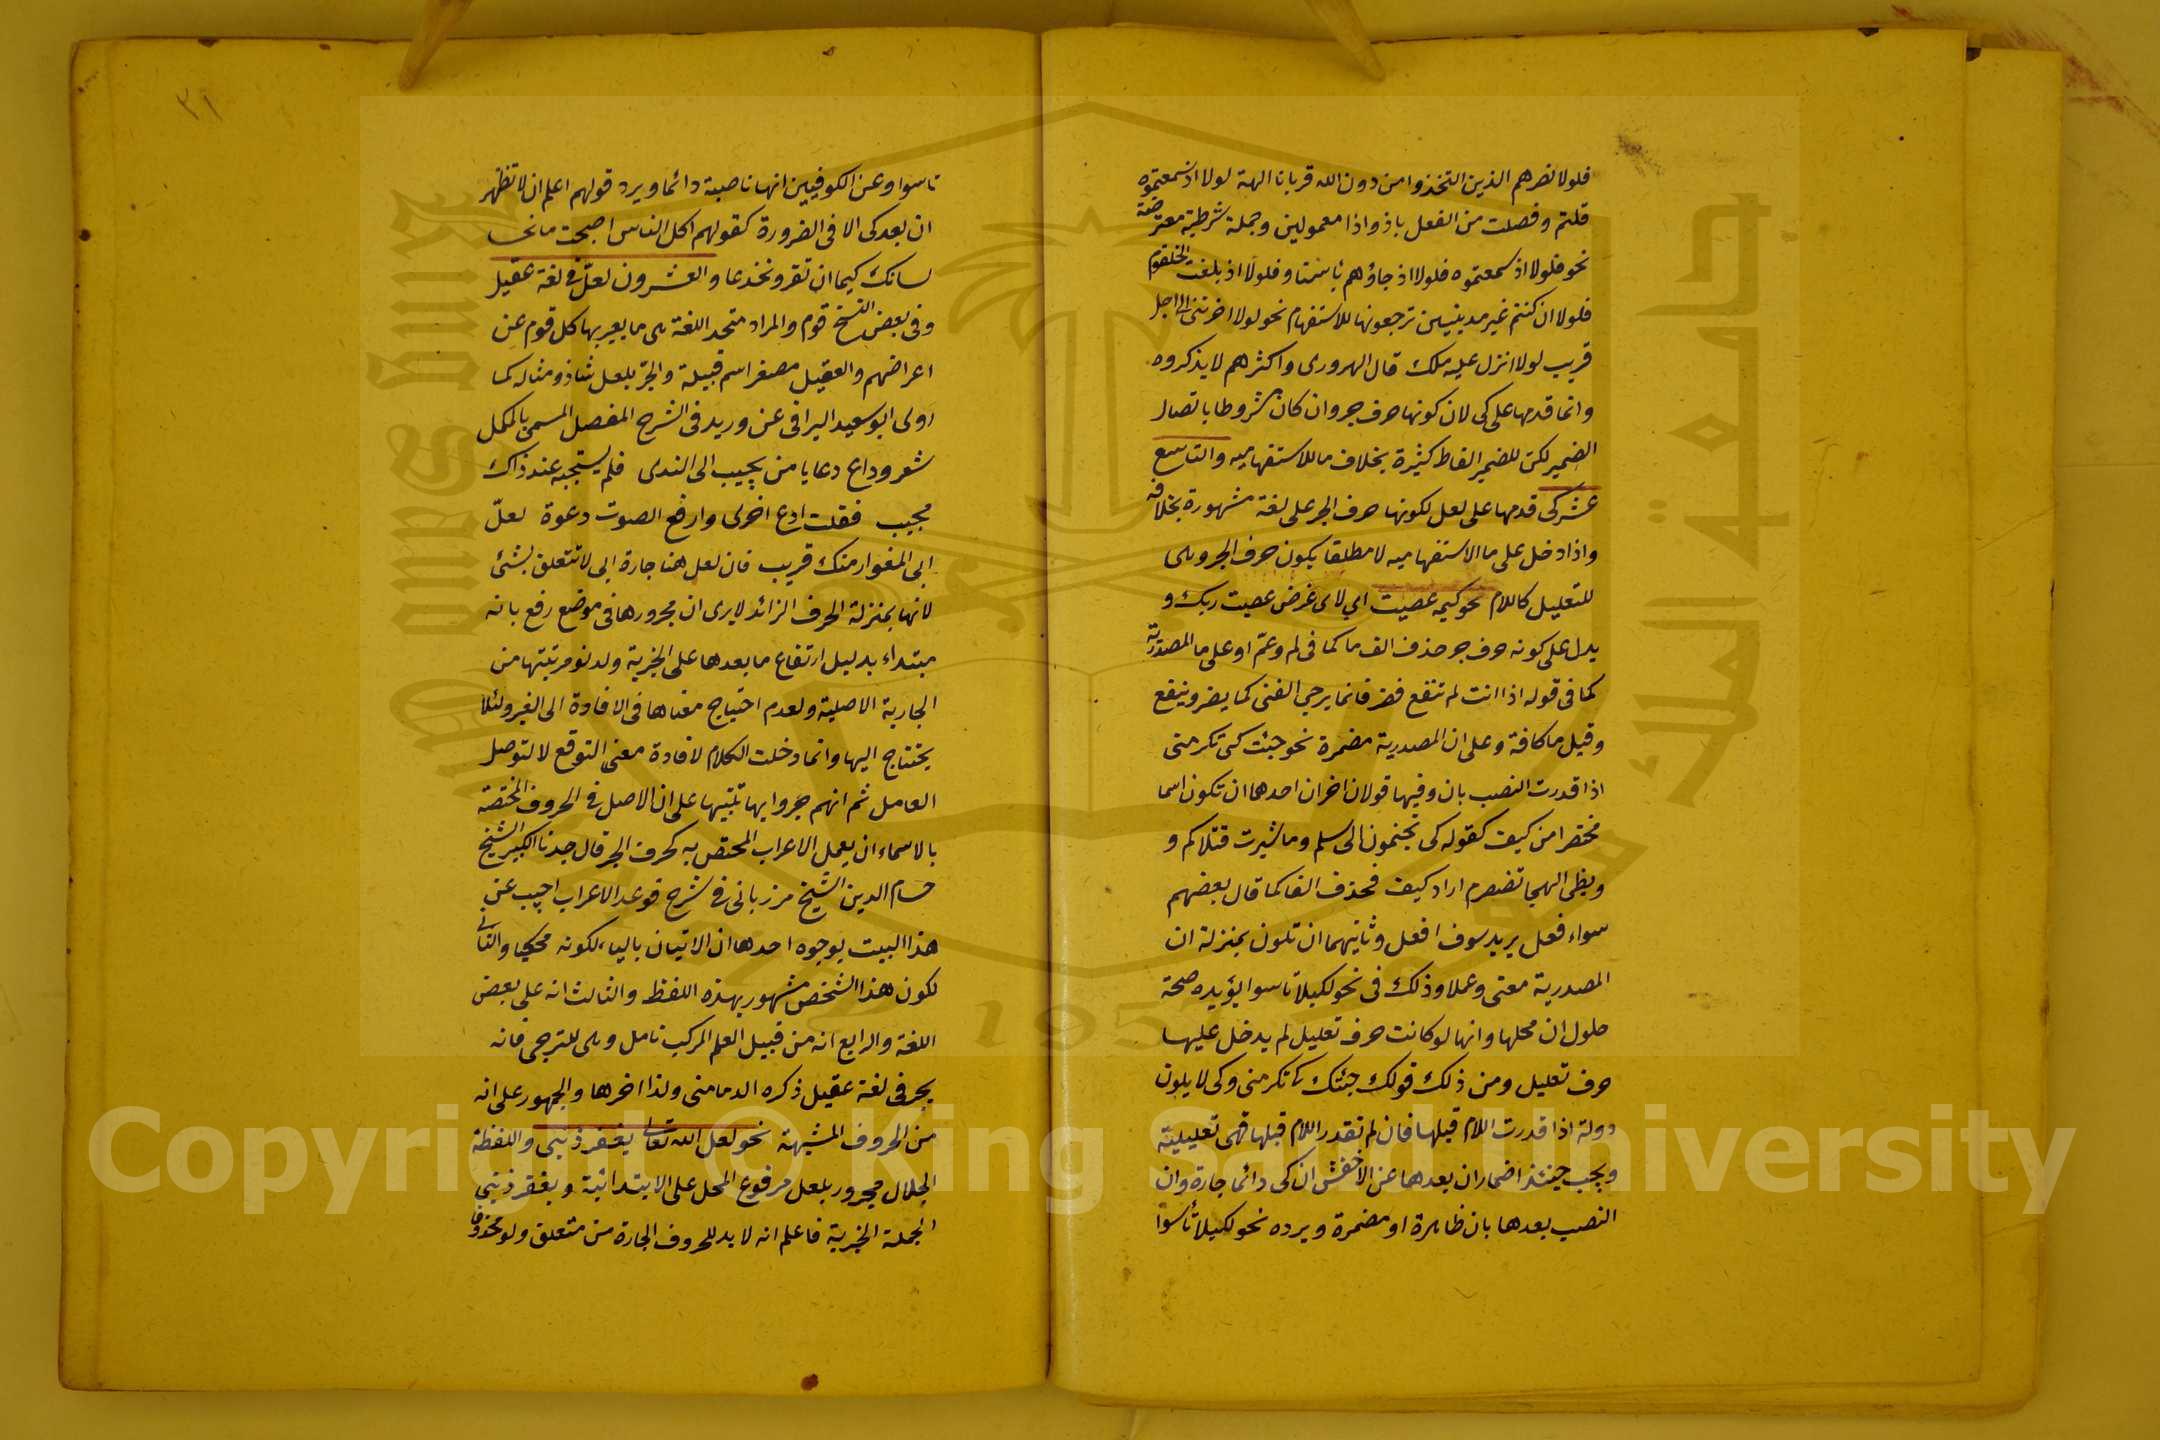 فلولا نصرهم الذين اتخذوا من دون الله قربانا الهة لولا اذ سمعتموه
قلتم وفصلت من الفعل باذ واذا معمولين وجملة شرطية معترضة
نحو فلولا اذ سمعتموه فلولا اذ جاؤهم بأسنا وفلولا اذ بلغت الحلقوم
فلولا ان كنتم غير مدينين ترجعونها للاستفهام نحو لولا اخرتنى الى اجل
قريب لولا انزل عليه ملك قال الهروى واكثرهم لا يذكروه
وانما قدمها على كى لان كونها حرف جر وان كان مشروطا باتصال
الضمير لكن للضمير الفاظ كثيرة بخلاف ما للاستفهاميه والتاسع
عشر كى قدمها على لعل لكونها حرف الجر على لغة مشهورة بخلافه
واذا دخل على ما الاستفهاميه لا مطلقا يكون حرف الجر وهى
للتعليل كاللام نحو كيمه عصيت اى لاى غرض عصيت ربك و
يدل على كونه حرف جر حذف الف ما كما فى لم وعمّ او على ما المصدرية
كما فى قوله اذا انت لم تنفع فضر فانما يرجى الفتى كما يضر وينفع
وقيل ما كافة وعلى ان المصدرية مضمرة نحو جئت كى تكرمنى
اذا قدرت النصب بان وفيها قولان اخران احدهما ان تكون اسما
مختصرا من كيف كقوله كى تجنحون الى سلم وما ثئرت قتلاكم و
ولظى الهيجا تضطرم اراد كيف فحذف الفا كما قال بعضهم
سواء فعل يريد سوف افعل وثانيهما ان تكون بمنزلة ان
المصدرية معنى وعملا وذلك فى نحو لكيلا تاسوا يؤيده صحة
حلول ان محلها وانها لو كانت حرف تعليل لم يدخل عليها
حرف تعليل ومن ذلك قولك جئتك كى تكرمنى وكى لا يكون
دولة اذا قدرت اللام قبلها فان لم تقدر اللام قبلها فهى تعليليّة
ويجب حينئذ اضمار ان بعدهما عن الاخفش ان كى دائما جارة وان
النصب بعدها بان ظاهرة او مضمرة ويرده نحو لكيلا تأسوا
٣١
تاسوا وعن الكوفيين انها ناصبة دائما ويرد قولهم اعلم ان لا تظهر
ان بعد كى الا فى الضرورة كقولهم اكل الناس اصبحت مانحا
لسانك كيما ان تغر وتخدعا والعشرون لعلّ فى لغة عقيل
وفى بعض النسخ قوم والمراد متحد اللغة هى ما يعبر بها كل قوم عن
اغراضهم والعقيل مصغر اسم قبيلة والجرّ بلعل شاذ ومثاله كما
روى ابو سعيد السيرافى عن وريد فى الشرح المفصل المسمى بالمكمل
شعر وداع دعا يا من يجيب الى الندى فلم يستجبه عند ذاك
مجيب فقلت ادع اخرى وارفع الصوت دعوة لعلّ
ابى المغوار منك قريب فان لعل هنا جارة اى لا تتعلق بشئ
لانها بمنزلة الحرف الزائد لا يرى ان مجرورها فى موضع رفع بانه
مبتداء بدليل ارتفاع ما بعدها على الخبرية ولدنو مرتبتها من
الجارية الاصلية ولعدم احتياج معناها فى الافادة الى الغير ولئلا
يحتاج اليها وانما دخلت الكلام لافادة معنى التوقع لا لتوصل
العامل ثم انهم جروا بها تنبيها على ان الاصل فى الحروف المختصة
بالاسماء ان يعمل الاعراب المختص به كحرف الجر قال جدنا الكبير الشيخ
حسام الدين الشيخ مرزبانى فى شرح قوعد الاعراب اجيب عن
هذا البيت بوجوه احدها ان الاتيان بالياء لكونه محكيا والثانى
لكون هذا الشخص مشهور بهذه اللفظ والثالث انه على بعض
اللغة والرابع انه من قبيل العلم المركب تامل وهى للترجى فانه
يجر فى لغة عقيل ذكره الدمامنى ولذا اخرها والجمهور على انه
من الحروف المشبهة نحو لعل الله تعالى يغفر ذنبى واللفظة
الجلال مجرور بلعل مرفوع المحل على الابتدائية ويغفر ذنبى
الجملة الخبرية فاعلم انه لا بد للحروف الجارة من متعلق ولو محذوفا
جامعة الملك سعود
King Saud University
1957
Copyright © King Saud University